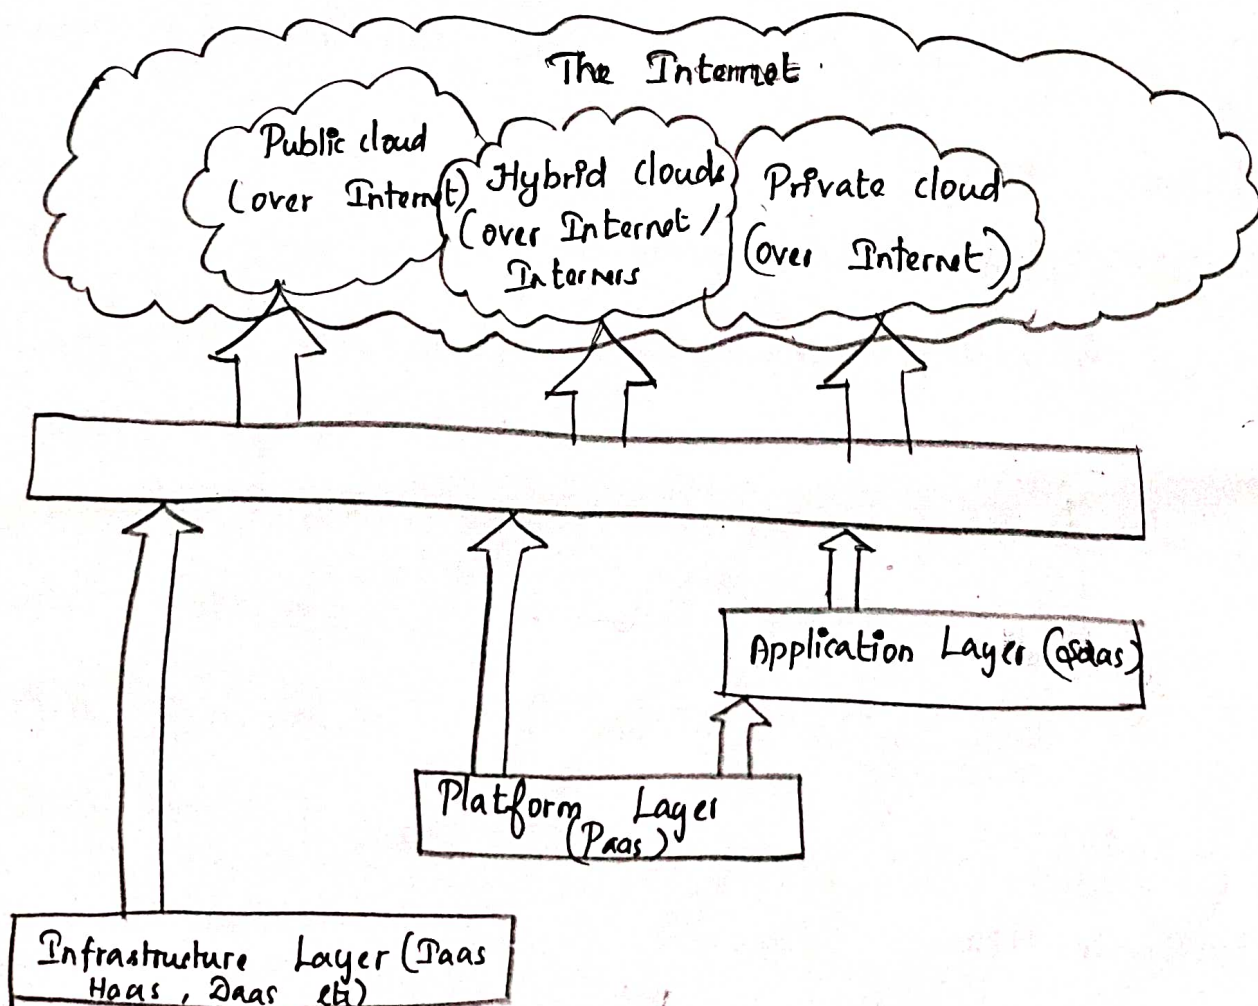 The Internet
Public cloud
(over Internet)
Hybrid clouds
(over Internet /
Interners
Private cloud
(over Internet)
Application Layer (Saas)
Platform Layer
(Paas)
Infrastructure Layer (Iaas
Haas, Daas etc)